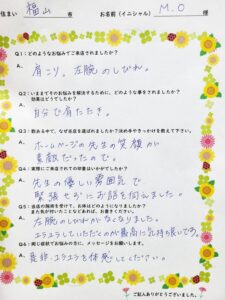 住まい 福山 市 お名前（イニシャル） M.O 様
Q1：どのようなお悩みでご来店されましたか？
A． 肩こり、左腕のしびれ。
Q2：いままでそのお悩みを解決するために、どのような事をされましたか？
効果はどうでしたか？
A． 自分で肩たたき。
Q3：数ある中で、なぜ当店を選ばれましたか？決め手やきっかけを教えて下さい。
A． ホームページの先生の笑顔が
素敵だったので。
Q4：実際にご来店されての印象はいかがでしたか？
A． 先生の優しい雰囲気で
緊張せずにお話を伺えました。
Q5：当店の施術を受けて、お体はどのようになりましたか？
また気が付いたことなどあれば、お書きください。
A． 左腕のしびれがなくなりました。
ユラユラしていただくのが最高に気持ち良いです。
Q6：同じ症状でお悩みの方に、メッセージをお願いします。
A． 是非、ユラユラを体感してください。
ご記入ありがとうございました。